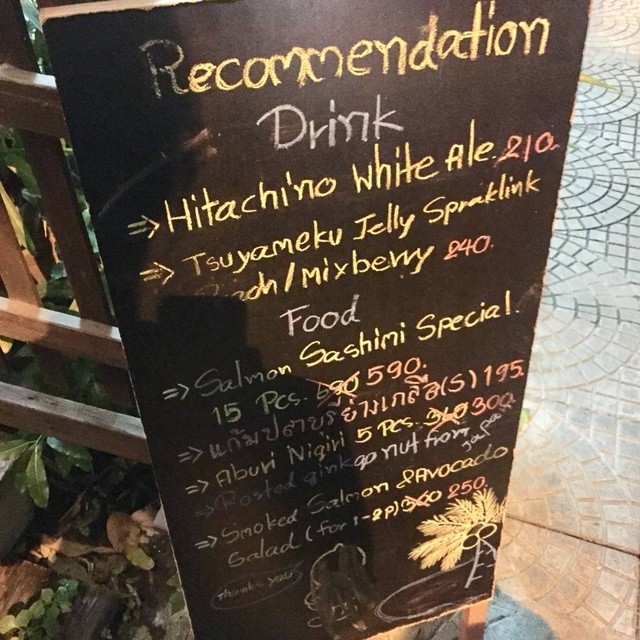 Recommendation
Drink
⇒ Hitachino White Ale 210.
⇒ Tsuyameku Jelly Spraklink
/Mixberry 240.
Food
⇒ Salmon Sashimi Special.
15 Pcs. 690 590.
⇒ แก้มปลาบุริย่างเกลือ(S) 195.
⇒ Aburi Nigiri 5 Pcs. 360 300.
⇒ Rosted ginkgo nut from Japan
⇒ Smoked Salmon & Avocado
Salad (for 1-2 P) 360 250.
Thank you